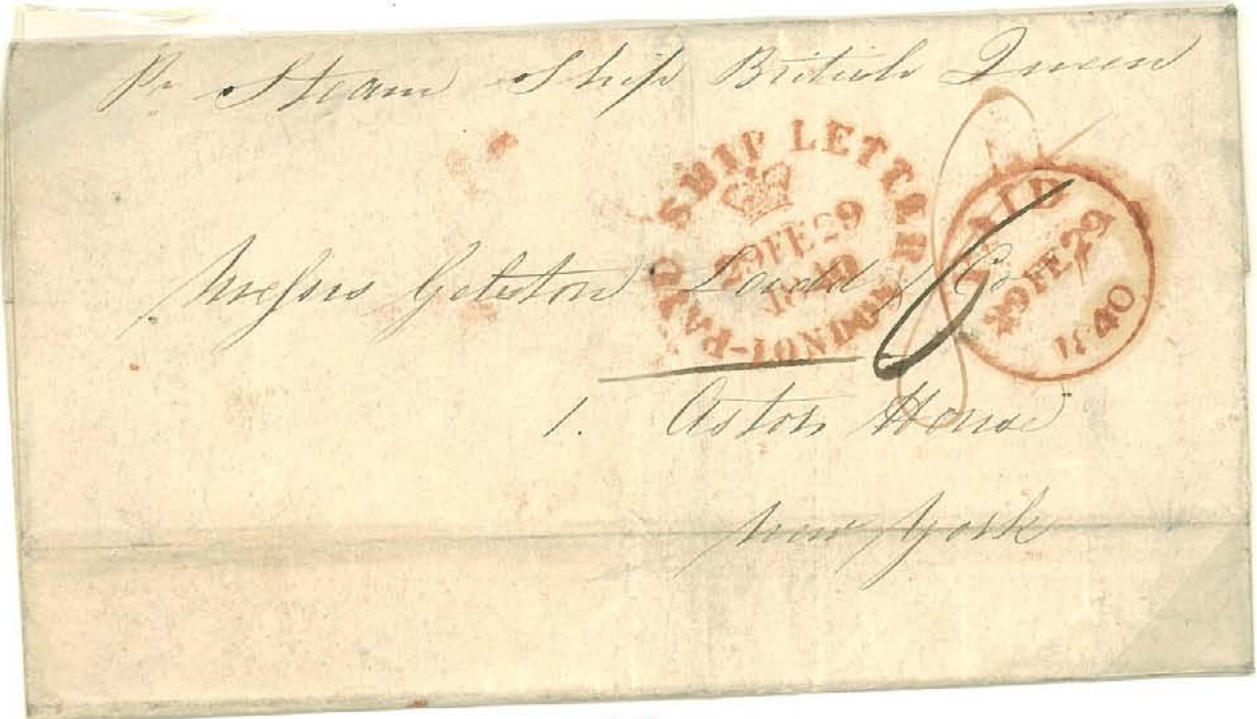 Pr Steam Ship British Queen
PAID SHIP LETTER LONDON
29 FE 29
1840
PAID
29 FE 29
1840
8
6
Messrs Gelston Ladd & Co
1. Astor House
New York